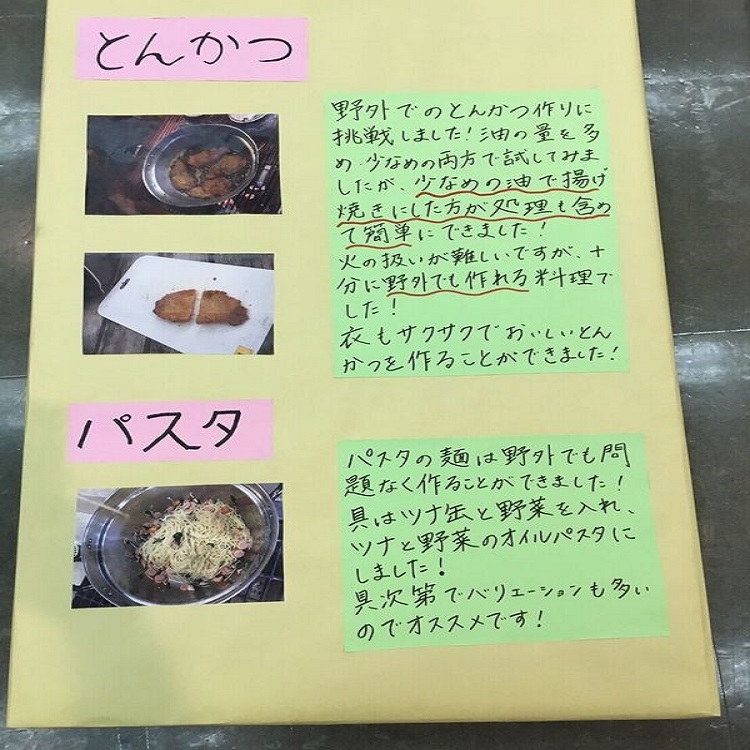 とんかつ
野外でのとんかつ作りに
挑戦しました！油の量を多
め・少なめの両方で試してみま
したが、少なめの油で揚げ
焼きにした方が処理も含め
て簡単にできました！
火の扱いが難しいですが、十
分に野外でも作れる料理で
した！
衣もサクサクでおいしいとん
かつを作ることができました！
パスタ
パスタの麺は野外でも問
題なく作ることができました！
具はツナ缶と野菜を入れ、
ツナと野菜のオイルパスタに
しました！
具次第でバリエーションも多い
のでオススメです！